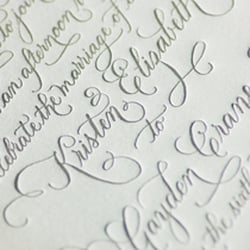 to joi
an afternoon
celebrate the marriage of
Kristen Elisabeth
to
Gaydon Crane
the sixt